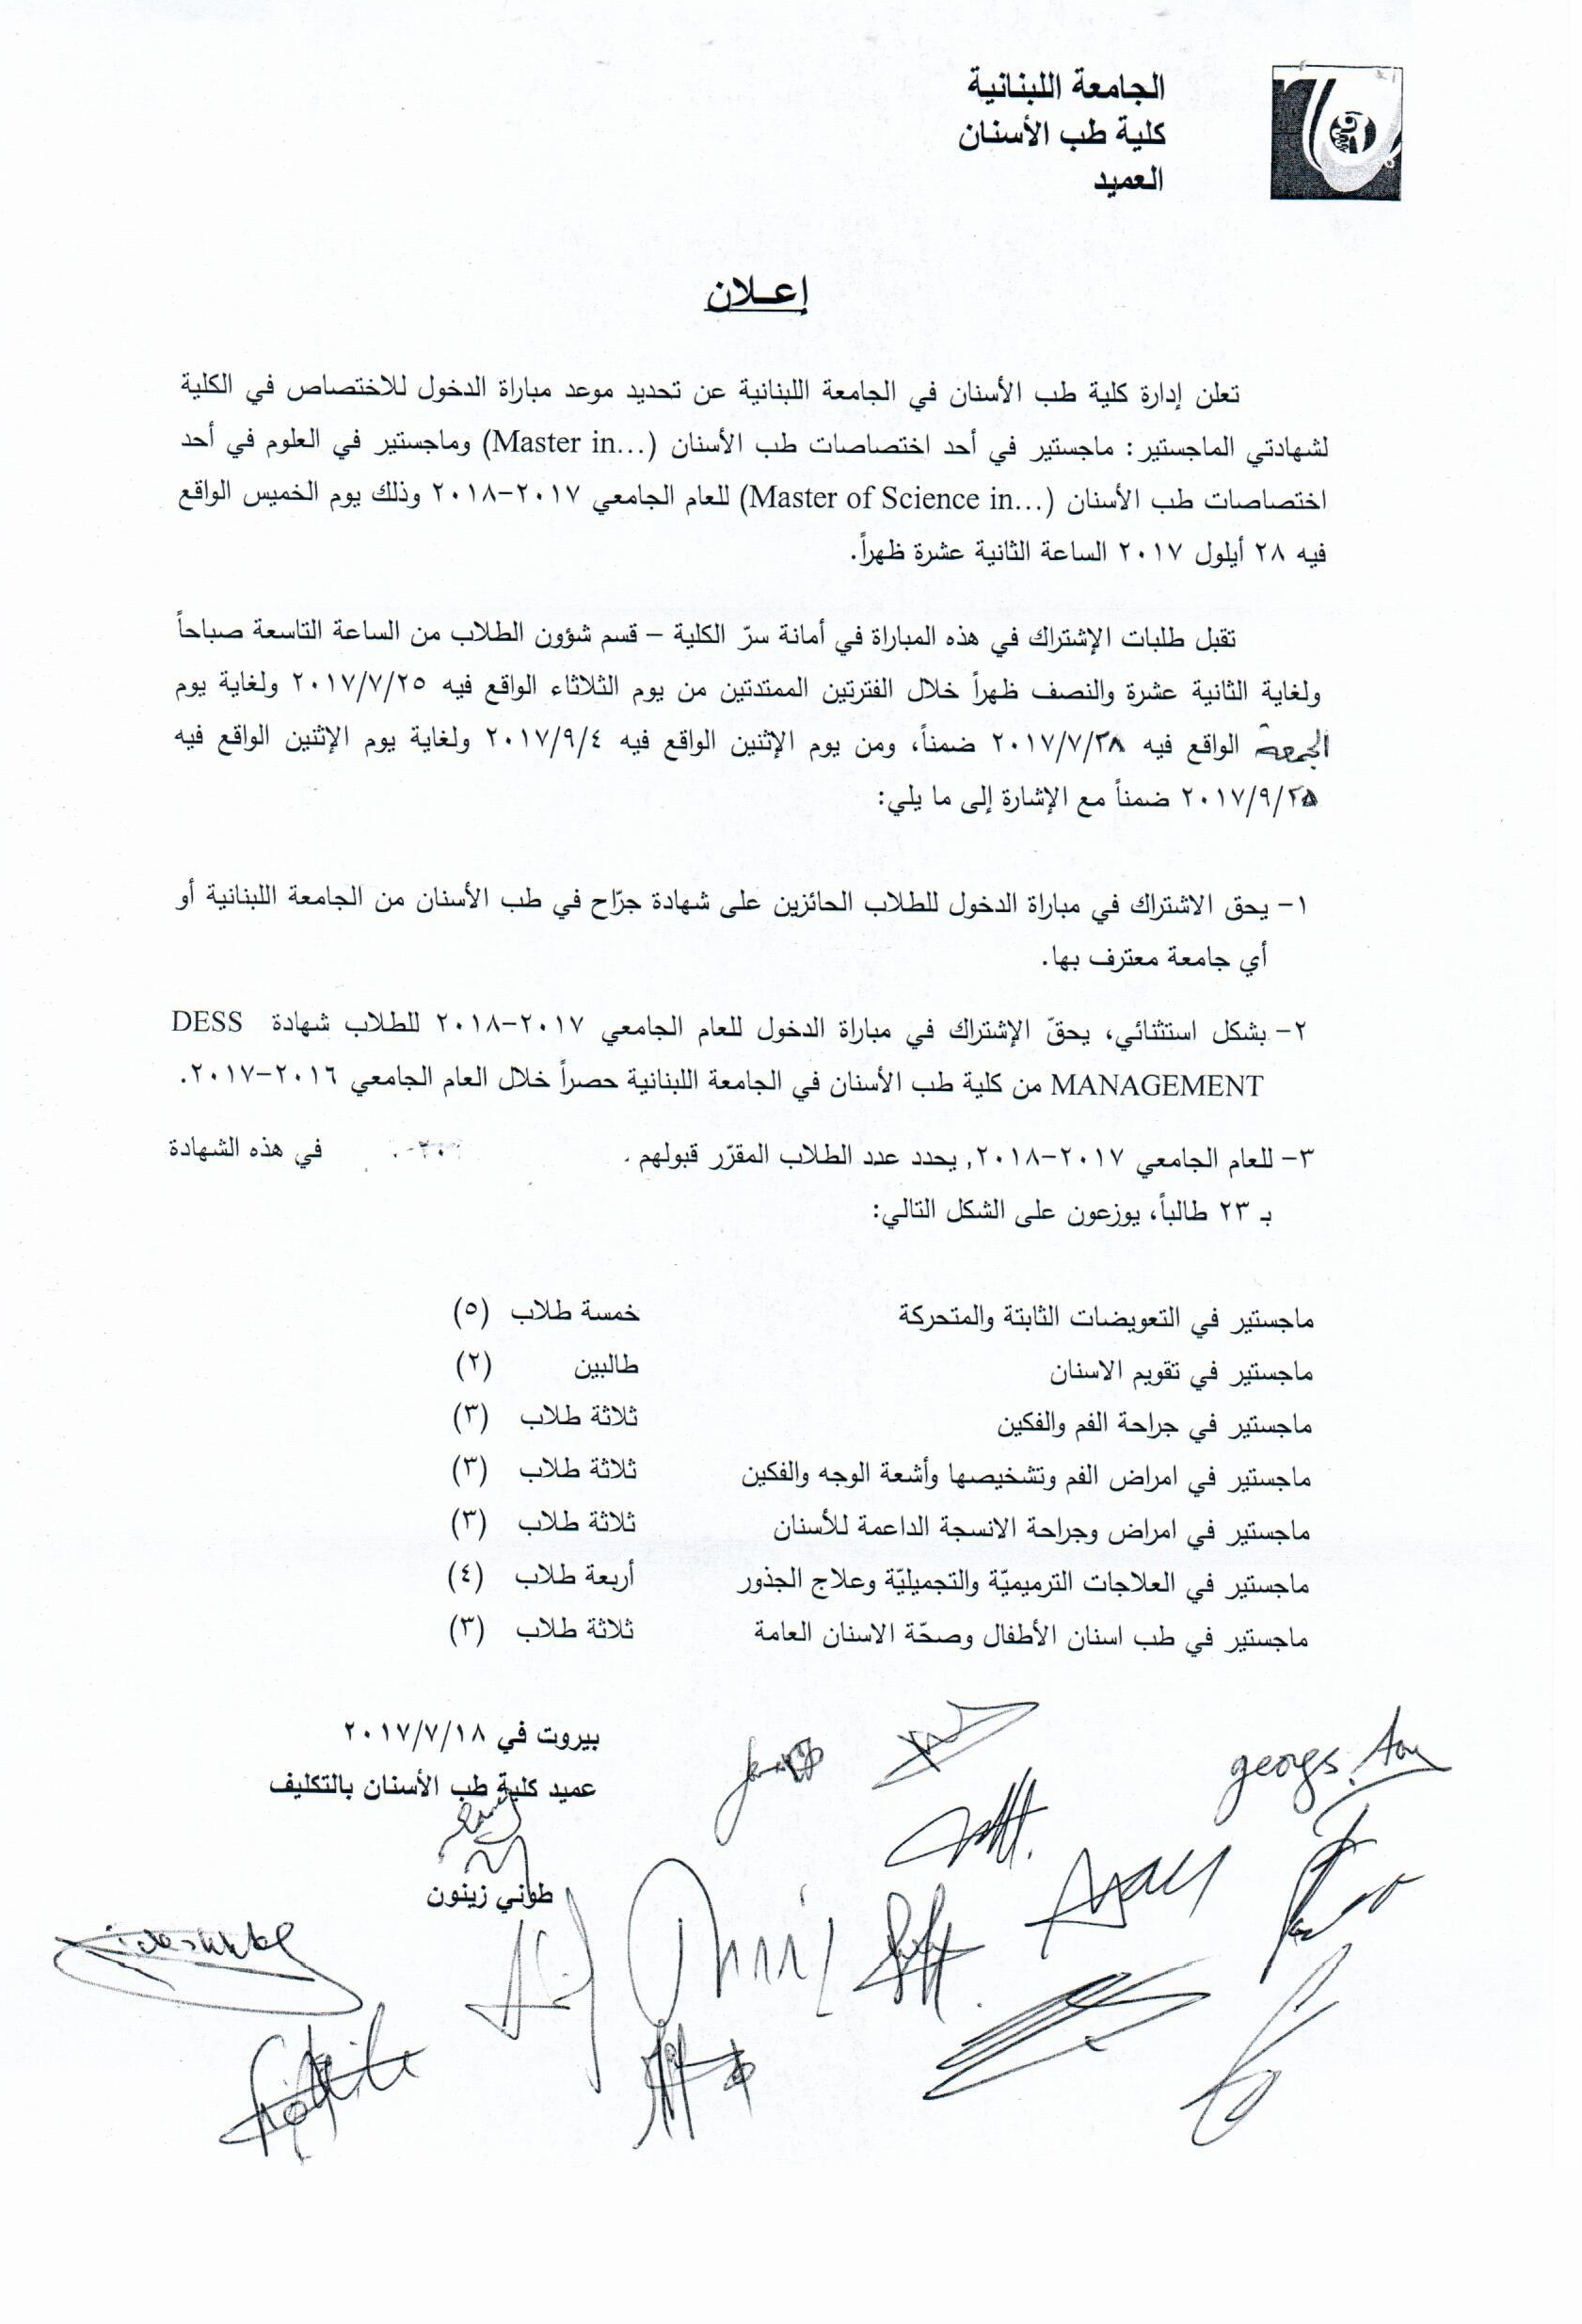 الجامعة اللبنانية
كلية طب الأسنان
العميد
إعـلان
تعلن إدارة كلية طب الأسنان في الجامعة اللبنانية عن تحديد موعد مباراة الدخول للاختصاص في الكلية
لشهادتي الماجستير: ماجستير في أحد اختصاصات طب الأسنان (Master in...) وماجستير في العلوم في أحد
اختصاصات طب الأسنان (Master of Science in...) للعام الجامعي ٢٠١٧-٢٠١٨ وذلك يوم الخميس الواقع
فيه ٢٨ أيلول ٢٠١٧ الساعة الثانية عشرة ظهراً.
تقبل طلبات الإشتراك في هذه المباراة في أمانة سرّ الكلية – قسم شؤون الطلاب من الساعة التاسعة صباحاً
ولغاية الثانية عشرة والنصف ظهراً خلال الفترتين الممتدتين من يوم الثلاثاء الواقع فيه ٢٠١٧/٧/٢٥ ولغاية يوم
الجمعة الواقع فيه ٢٠١٧/٧/٢٨ ضمناً، ومن يوم الإثنين الواقع فيه ٢٠١٧/٩/٤ ولغاية يوم الإثنين الواقع فيه
٢٠١٧/٩/٢٥ ضمناً مع الإشارة إلى ما يلي:
١- يحق الاشتراك في مباراة الدخول للطلاب الحائزين على شهادة جرّاح في طب الأسنان من الجامعة اللبنانية أو
أي جامعة معترف بها.
٢- بشكل استثنائي، يحقّ الإشتراك في مباراة الدخول للعام الجامعي ٢٠١٧-٢٠١٨ للطلاب شهادة DESS
MANAGEMENT من كلية طب الأسنان في الجامعة اللبنانية حصراً خلال العام الجامعي ٢٠١٦-٢٠١٧.
٣- للعام الجامعي ٢٠١٧-٢٠١٨, يحدد عدد الطلاب المقرّر قبولهم في هذه الشهادة
بـ ٢٣ طالباً، يوزعون على الشكل التالي:
ماجستير في التعويضات الثابتة والمتحركة خمسة طلاب (٥)
ماجستير في تقويم الاسنان طالبين (٢)
ماجستير في جراحة الفم والفكين ثلاثة طلاب (٣)
ماجستير في امراض الفم وتشخيصها وأشعة الوجه والفكين ثلاثة طلاب (٣)
ماجستير في امراض وجراحة الانسجة الداعمة للأسنان ثلاثة طلاب (٣)
ماجستير في العلاجات الترميميّة والتجميليّة وعلاج الجذور أربعة طلاب (٤)
ماجستير في طب اسنان الأطفال وصحّة الاسنان العامة ثلاثة طلاب (٣)
بيروت في ٢٠١٧/٧/١٨
عميد كلية طب الأسنان بالتكليف
طوني زينون